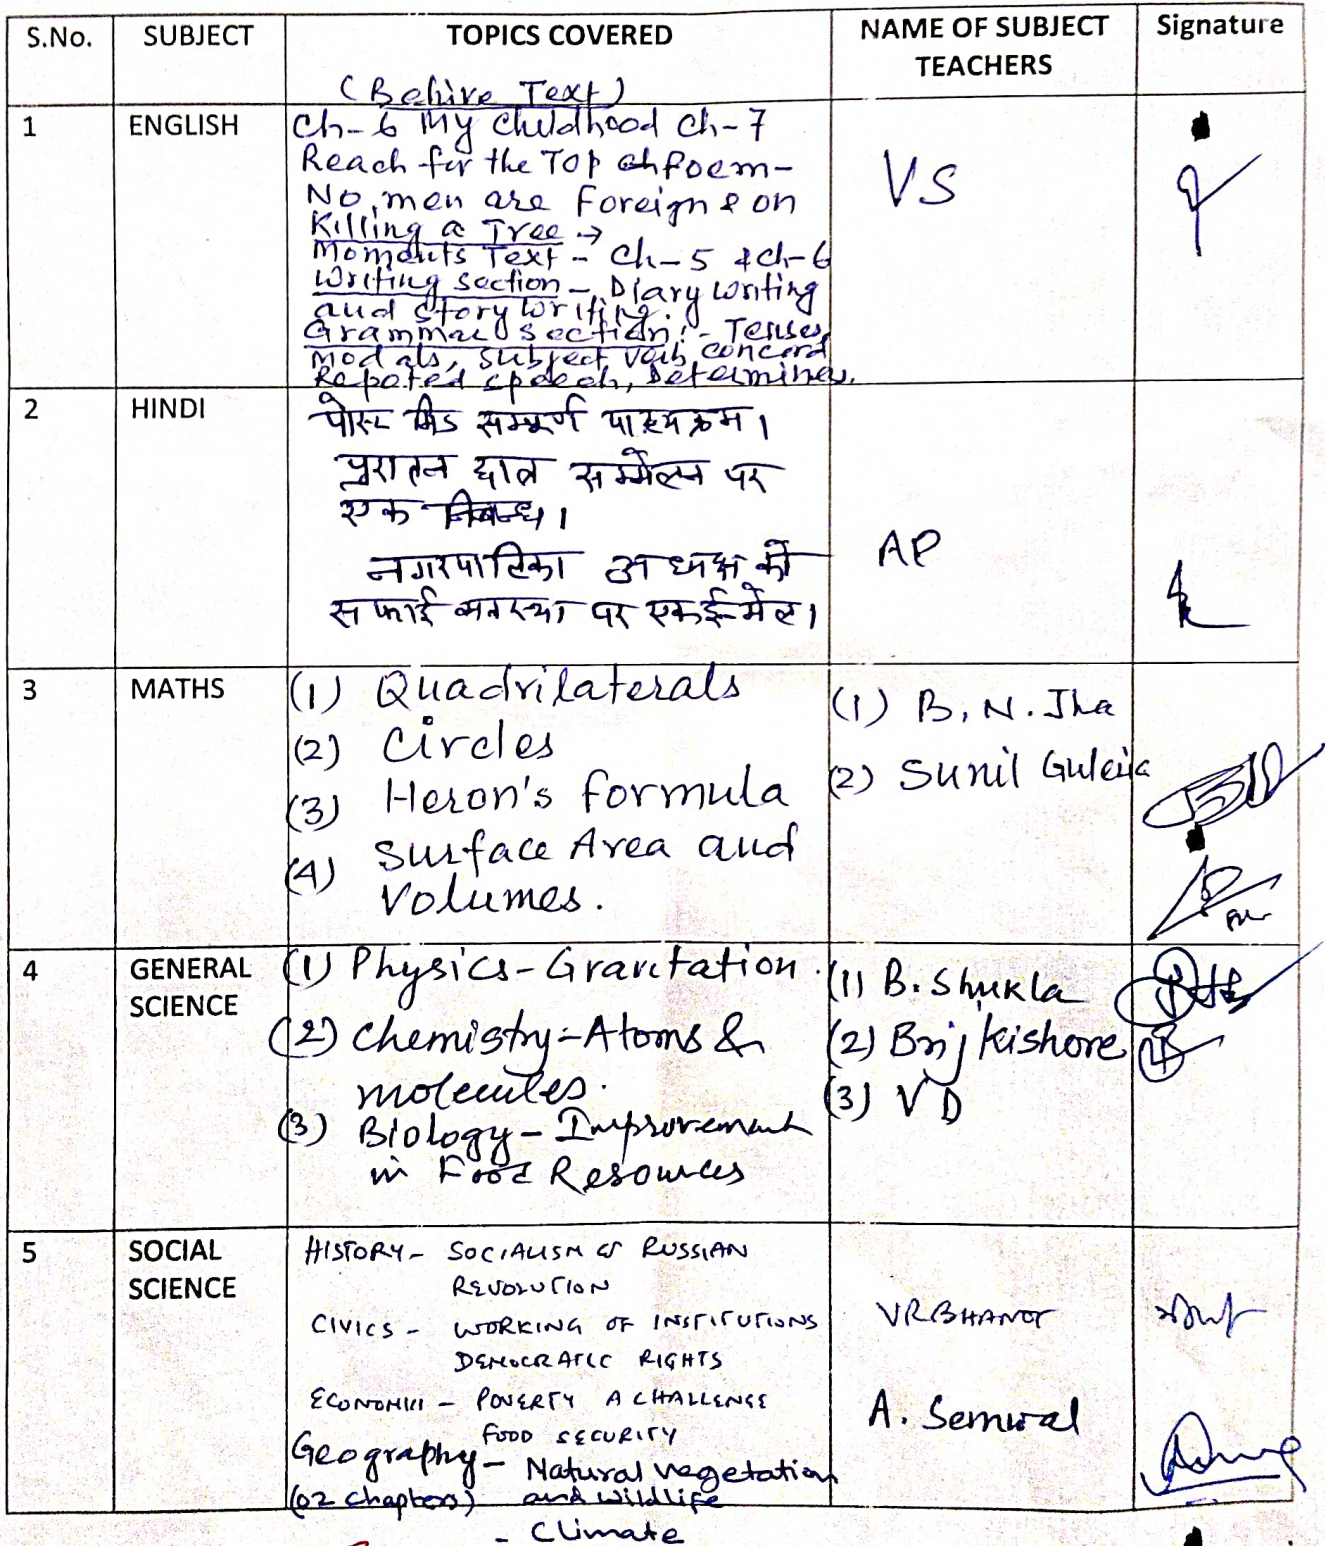 S.No. SUBJECT TOPICS COVERED NAME OF SUBJECT TEACHERS Signature
(Behive Text)
1 ENGLISH
Ch-6 My Childhood Ch-7
Reach for the Top Poem-
No men are Foreign & on
Killing a Tree →
Moments Text - Ch-5 & Ch-6
Writing section - Diary Writing
and Story Writing.
Grammar Section:- Tenses,
Modals, Subject Verb Concord
Repoted speech, Determiners.
VS
2 HINDI
पोस्ट मिड सम्पूर्ण पाठ्यक्रम।
पुरातन छात्र सम्मेलन पर
एक निबन्ध।
नगरपालिका अध्यक्ष को
सफाई व्यवस्था पर एक ई-मेल।
AP
3 MATHS
(1) Quadrilaterals
(2) Circles
(3) Heron's formula
(4) Surface Area and
Volumes.
(1) B. N. Jha
(2) Sunil Guleria
4 GENERAL SCIENCE
(1) Physics - Gravitation.
(2) Chemistry - Atoms &
molecules.
(3) Biology - Improvement
in Food Resources
(1) B. Shukla
(2) Brij Kishore
(3) VD
5 SOCIAL SCIENCE
HISTORY - SOCIALISM & RUSSIAN
REVOLUTION
CIVICS - WORKING OF INSTITUTIONS
DEMOCRATIC RIGHTS
ECONOMICS - POVERTY A CHALLENGE
FOOD SECURITY
Geography - Natural vegetation
(02 chapters) and wildlife
- Climate
VRBHANOT
A. Semwal